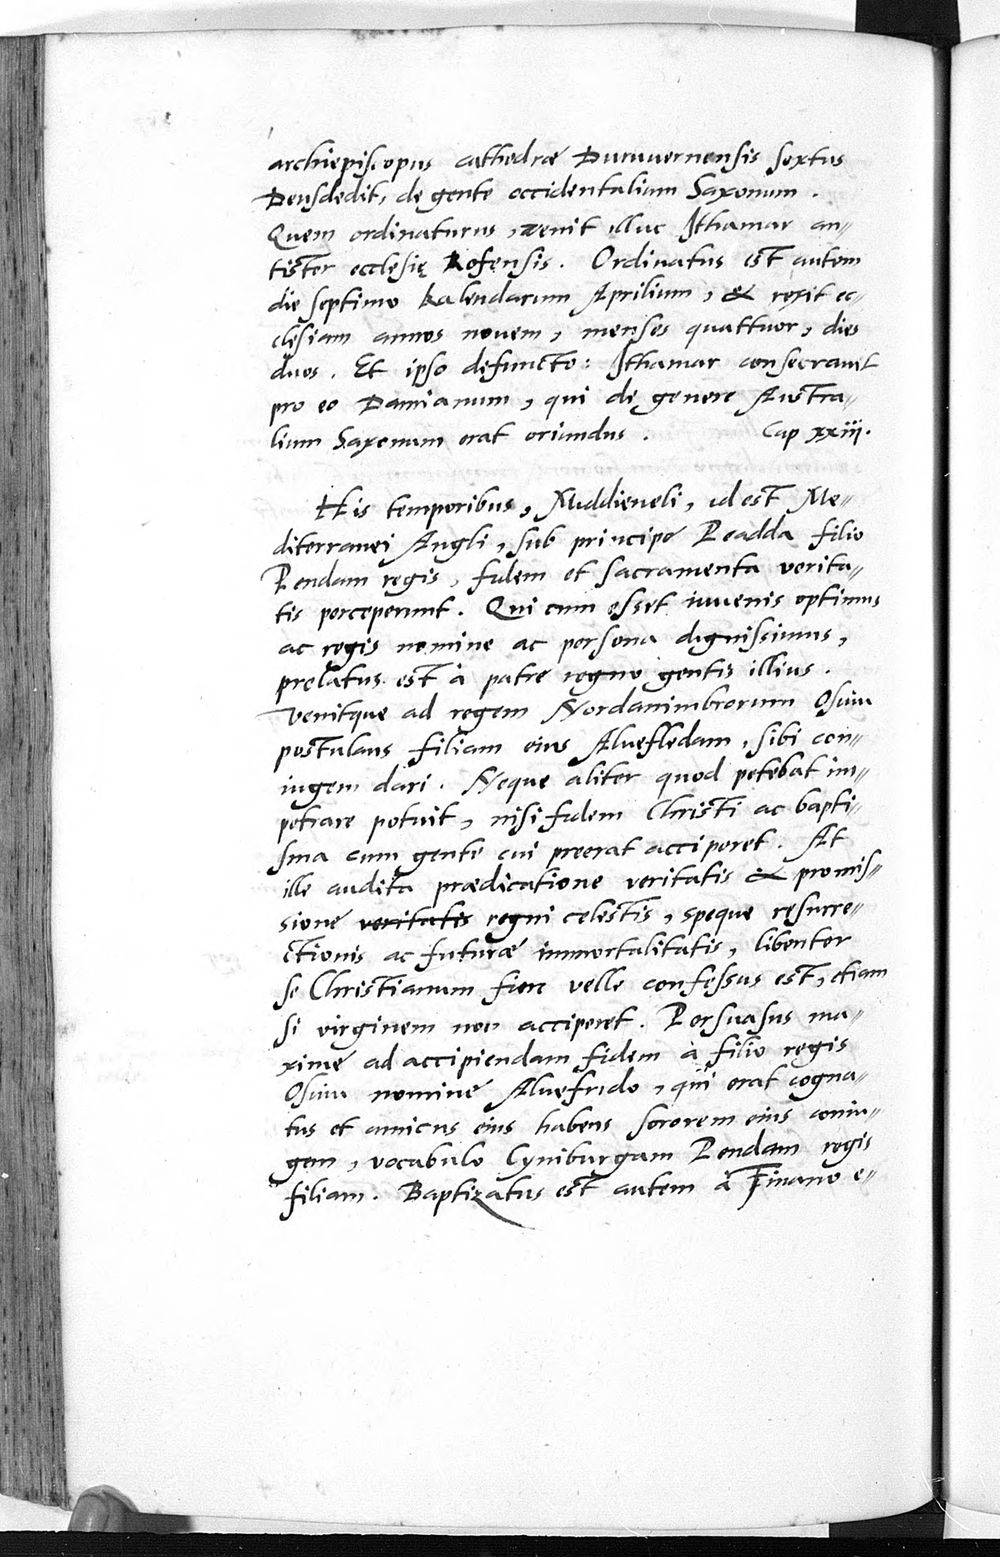 archiepiscopus cathedræ Duruvernensis sextus
Deusdedit, de gente occidentalium Saxonum.
Quem ordinaturus, venit illuc Ithamar an-
tistes ecclesię Rofensis. Ordinatus est autem
die septimo kalendarum Aprilium, & rexit ec-
clesiam annos novem, menses quattuor, dies
duos. Et ipso defuncto: Ithamar consecravit
pro eo Damianum, qui de genere Austra-
lium Saxonum erat oriundus. Cap xxiij.
His temporibus, Middieneli, id est Me-
diterranei Angli, sub principe Peadda filio
Pendam regis, fidem et sacramenta verita-
tis perceperunt. Qui cum esset iuvenis optimus
ac regis nomine ac persona dignissimus,
prelatus est à patre regno gentis illius.
Venitque ad regem Nordanimbrorum Osuiu
postulans filiam eius Aluefledam, sibi con-
iugem dari. Neque aliter quod petebat im-
petrare potuit, nisi fidem Christi ac bapti-
sma cum gente cui preerat acciperet. At
ille audita prædicatione veritatis & promis-
sione veritatis regni celestis, speque resurre-
ctionis ac futuræ immortalitatis, libenter
se Christianum fieri velle confessus est, etiam
si virginem non acciperet. Persuasus ma-
xime ad accipiendam fidem à filio regis
Osuiu nomine Aluefrido, qui erat cogna-
tus et amicus eius habens sororem eius coniu-
gem, vocabulo Cyniburgam Pendam regis
filiam. Baptizatus est autem à Finano e-